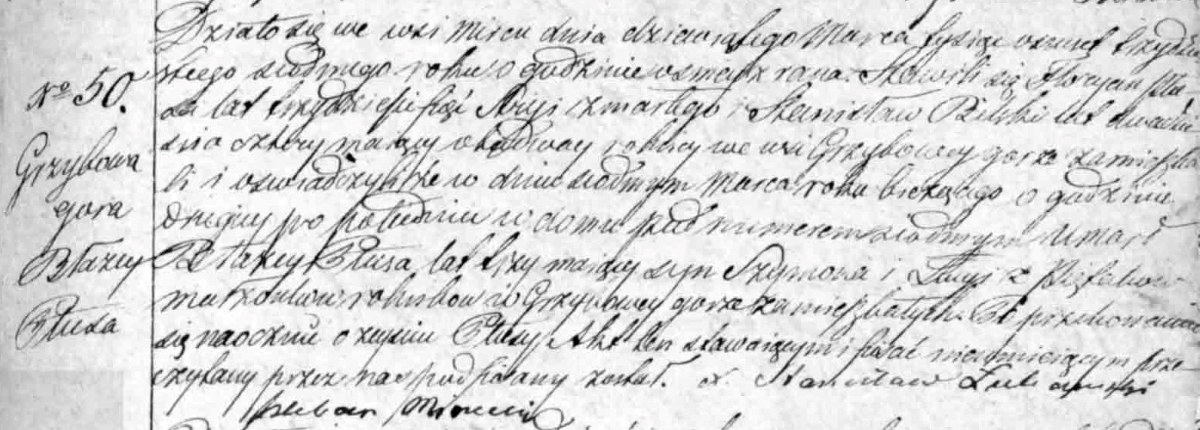 Działo się we wsi Mircu dnia dziewiątego Marca tysiąc ośmset trzydzie
stego siódmego roku, o godzinie osmey z rana. Stawili się Floryan Płu
sa lat trzydzieści mający i Stanisław Bilski lat dwadzie
ścia cztery mający obydwaj rolnicy we wsi Grzybowey gorze zamieszka
li i oświadczyli że w dniu siódmym Marca roku bieżącego o godzinie
drugiey po południu w domu pod numerem siódmym umarł
Błażey Płusa, lat trzy mający syn Szymona i z
małżonków rolników w Grzybowey gorze zamieszkałych. Po przekonaniu
się naocznie o zeyściu Płusy Akt ten stawaiącym i pisać nieumieiącym prze
czytany przez nas podpisany został. X. Stanisław
Pleban
No 50.
Grzybowa
gora
Błażey
Płusa